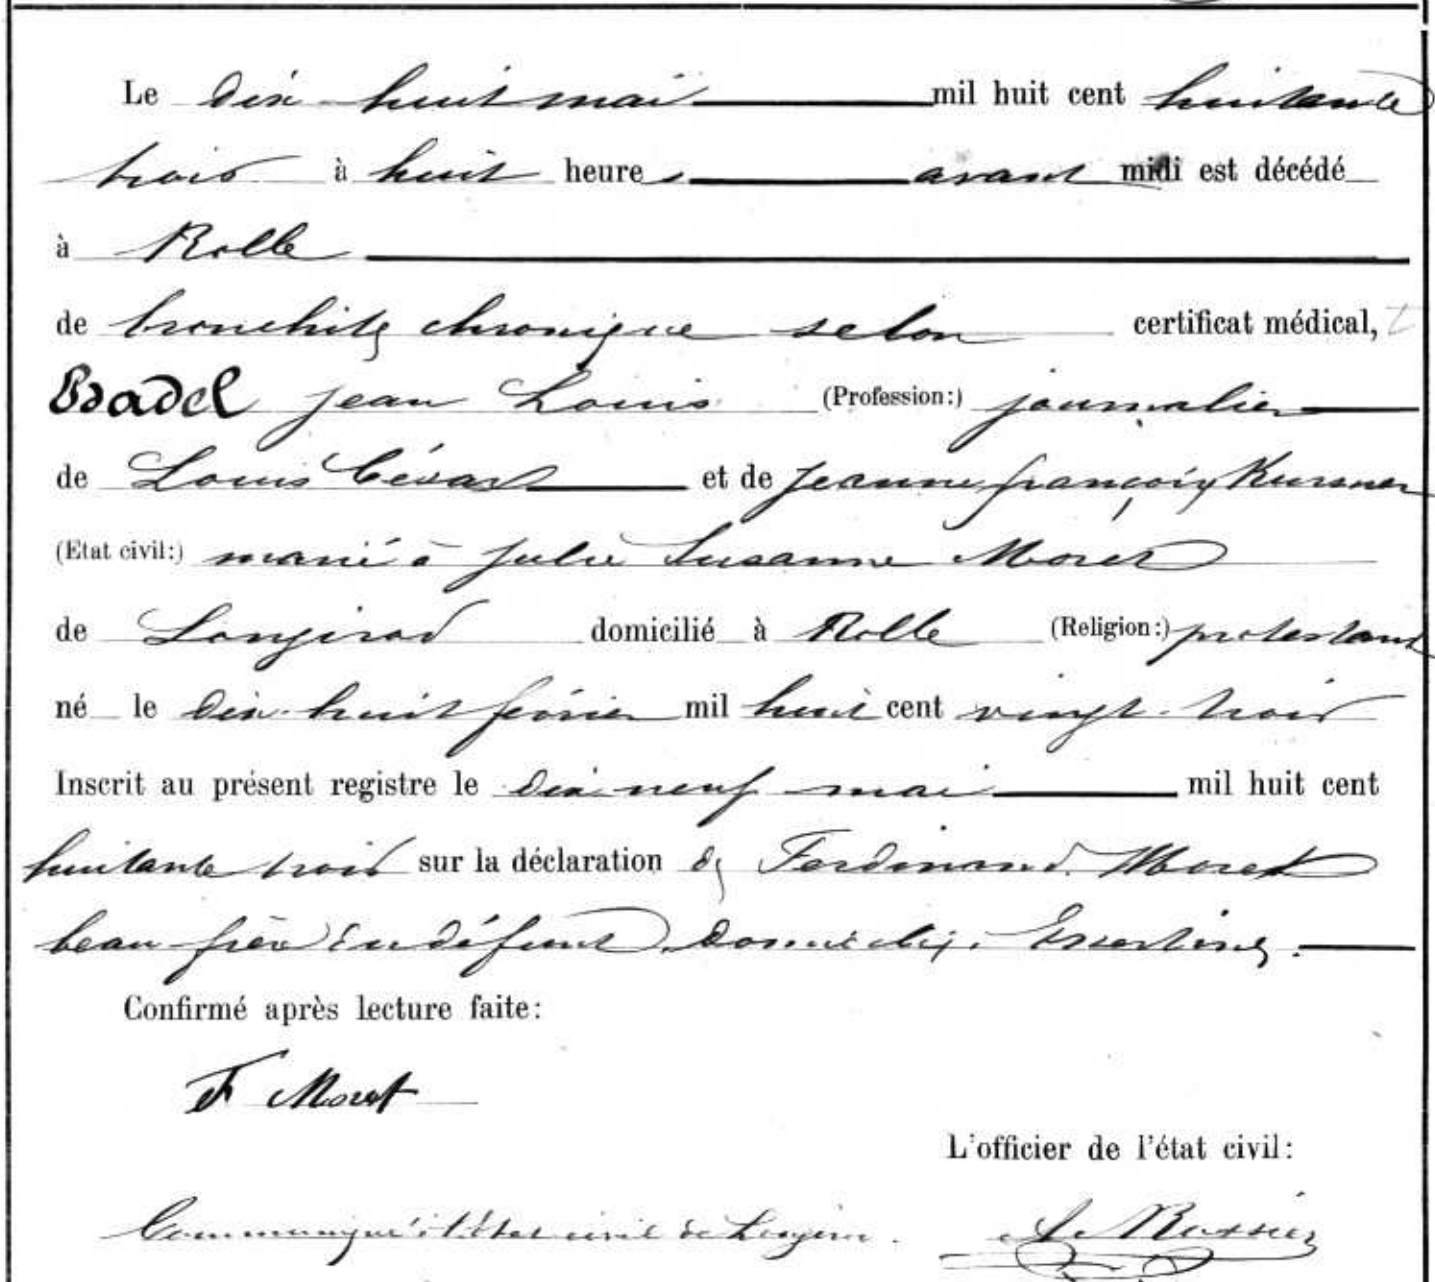 Le dix huit mai mil huit cent huitante
trois à huit heures avant midi est décédé
à Rolle
de bronchite chronique selon certificat médical,
Badel Jean Louis (Profession:) journalier
de Louis César et de Jeanne françoise
(Etat civil:) marié à Julie Susanne Moret
de Longirod domicilié à Rolle (Religion:) protestant
né le dix-huit février mil huit cent vingt-trois
Inscrit au présent registre le dix neuf mai mil huit cent
huitante trois sur la déclaration de Ferdinand Moret
beau-frère du défunt domicilié à Essertines.
Confirmé après lecture faite:
F Moret
L'officier de l'état civil:
Communiqué à l'état civil de